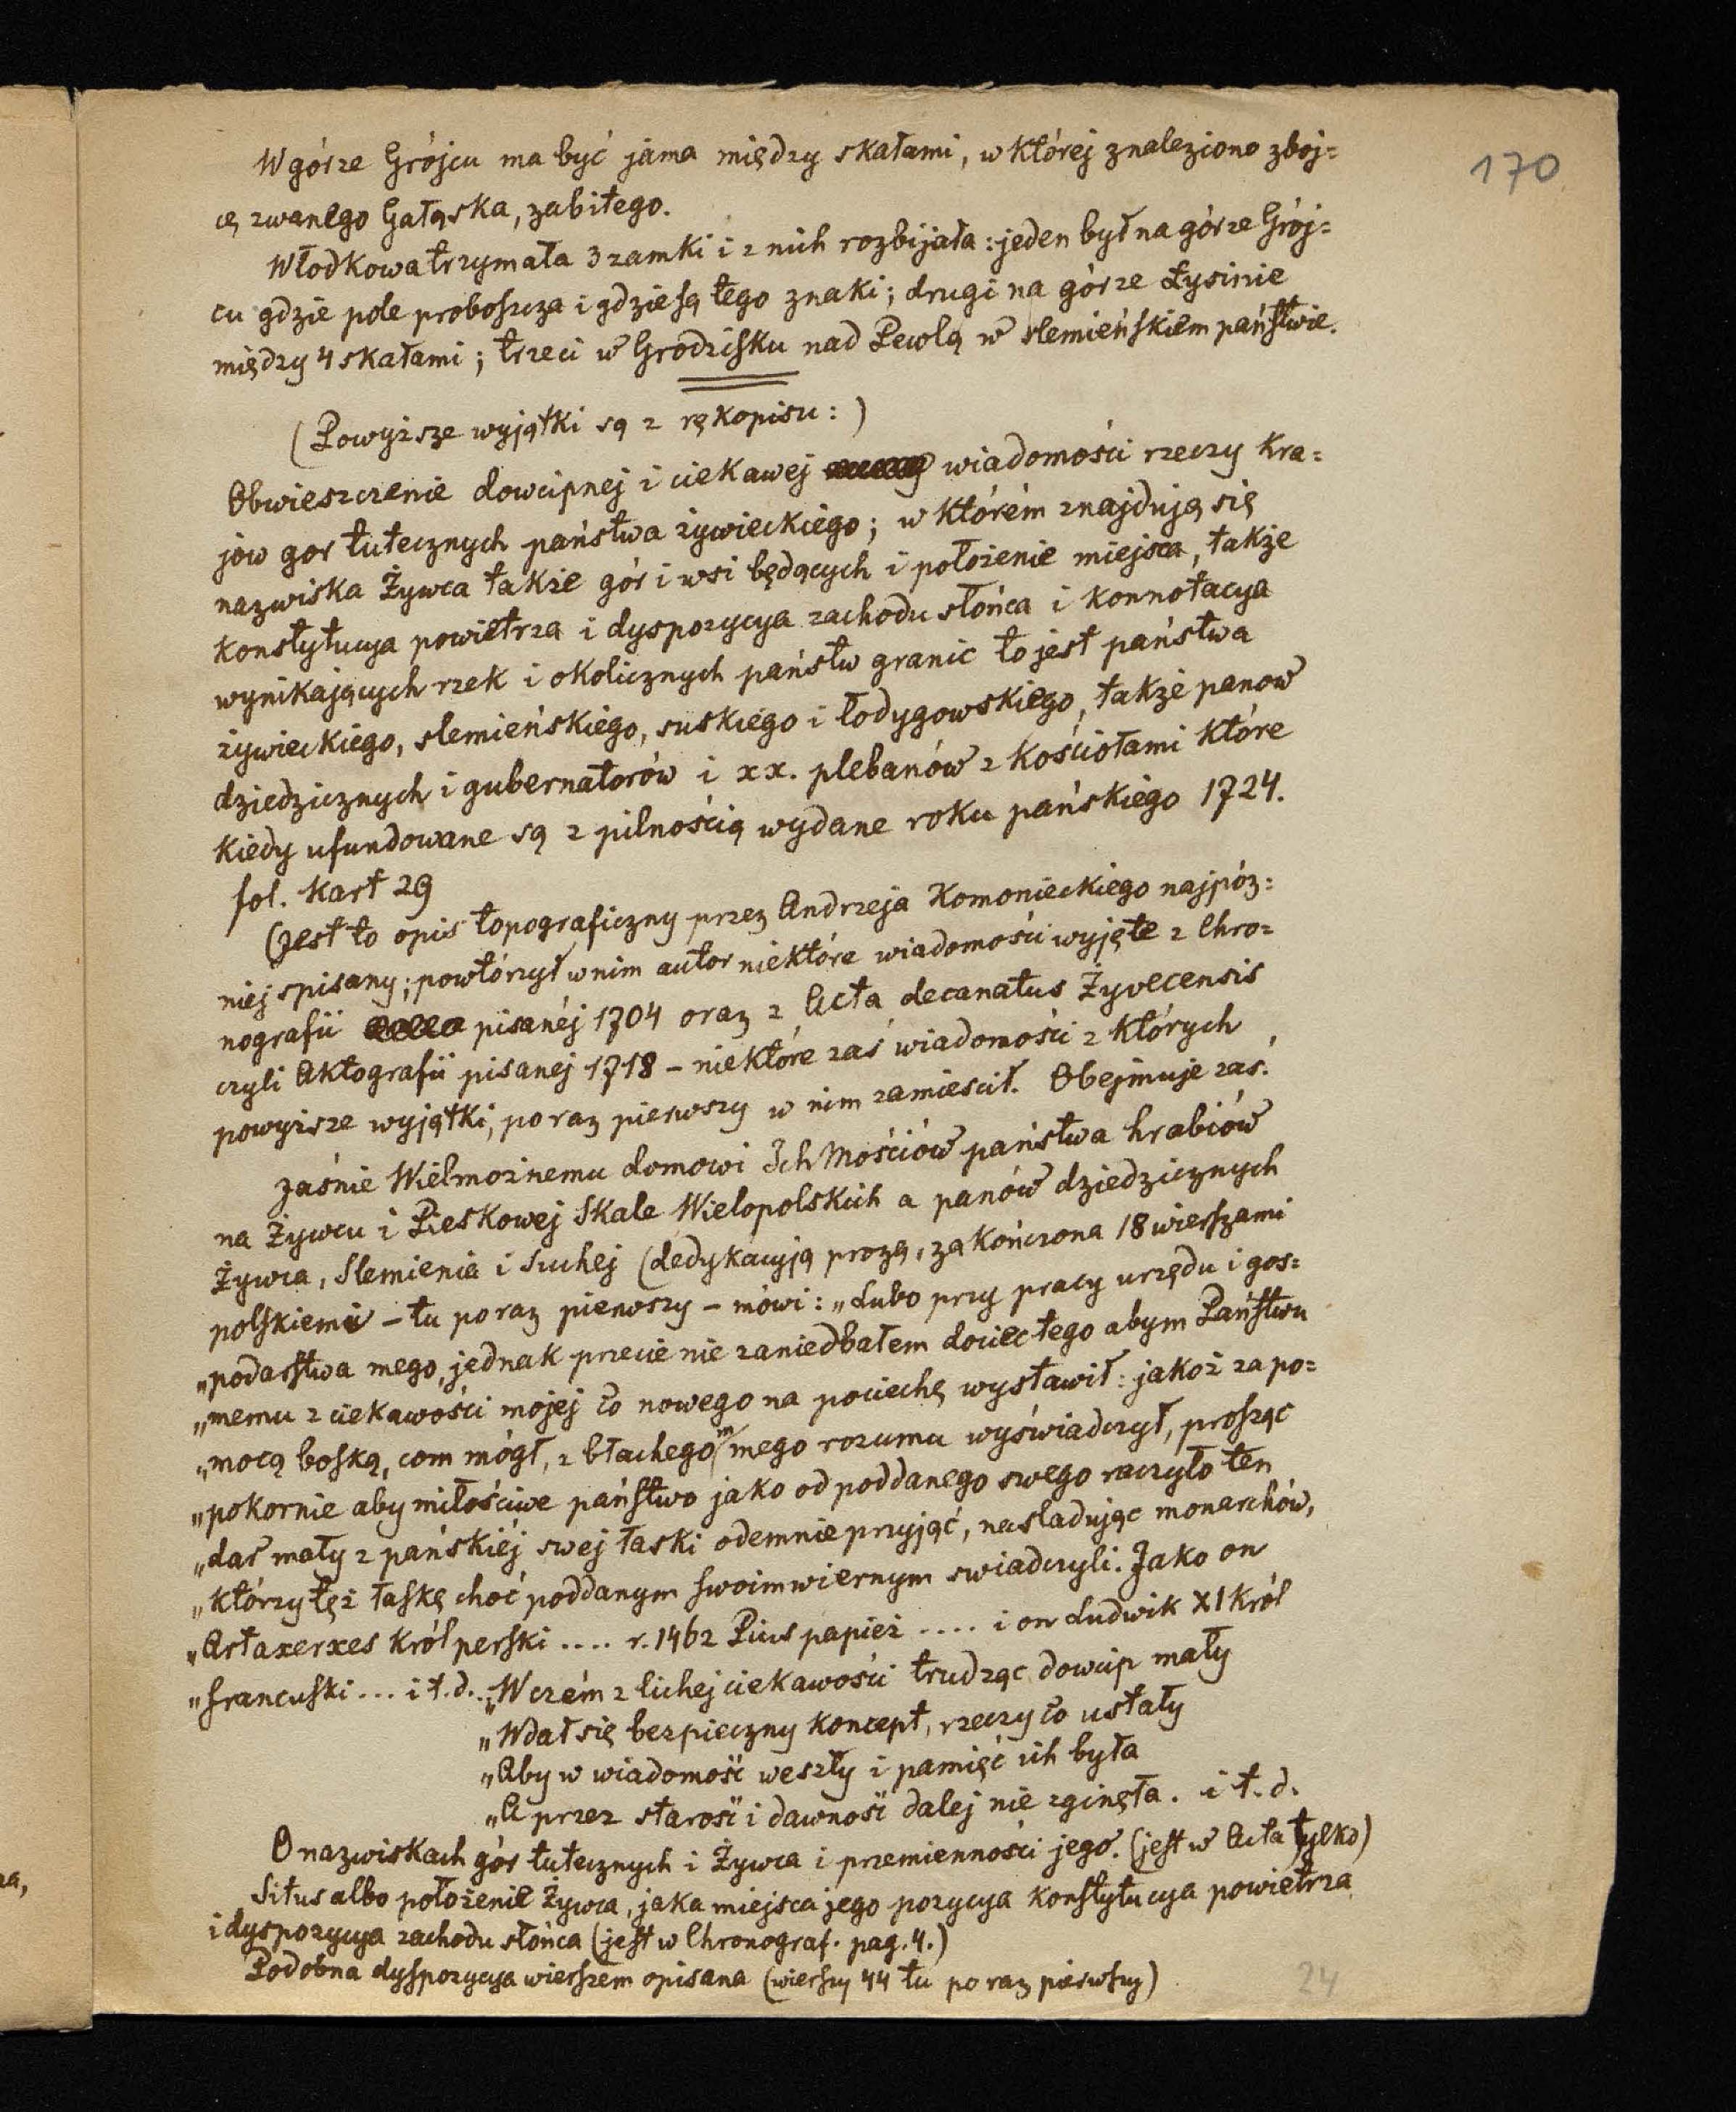 170
W górze Grójcu ma być jama między skałami, w której znaleziono zboj=
cę zwanego Gałąska, zabitego.
Włodkowa trzymała 3 zamki i z nich rozbijała: jeden był na górze Grój=
cu gdzie pole proboszcza i gdzie są tego znaki; drugi na górze Łysinie
między 4 skałami; trzeci w Grodzisku nad Pewlą w slemieńskiem państwie.
(Powyższe wyjątki są z rękopisu:)
Obwieszczenie dowcipnej i ciekawej wiadomości rzeczy kra=
jow gor tutecznych państwa żywieckiego; w którém znajdują się
nazwiska Żywca także gór i wsi będących i położenie miejsca, także
konstytucya powietrza i dyspozycya zachodu słońca i konnotacya
wynikających rzek i okolicznych państw granic to jest państwa
żywieckiego, slemieńskiego, suskiego i łodygowskiego, także panow
dziedzicznych i gubernatorów i xx. plebanów z kościołami które
kiedy ufundowane są z pilnością wydane roku pańskiego 1724.
fol. kart 29
(Jest to opis topograficzny przez Andrzeja Komonieckiego najpóz=
niej spisany; powtórzył w nim autor niektóre wiadomości wyjęte z Chro=
nografii pisanéj 1704 oraz z Acta decanatus Żyvecensis
czyli Aktografii pisanej 1718 – niektóre zaś wiadomości z których
powyższe wyjątki, po raz pierwszy w nim zamiescił. Obejmuje zaś:
Jaśnie Wielmożnemu domowi Ich Mościów państwa hrabiów
na Żywcu i Pieskowej Skale Wielopolskich a panów dziedzicznych
Żywca, Slemienia i Suchej (dedykacyją prozą, zakończona 18 wierszami
polskiemi – tu po raz pierwszy – mówi: „Lubo przy pracy urzędu i gos=
„podarstwa mego, jednak przecie nie zaniedbałem dociec tego abym Państwu
„memu z ciekawości mojej co nowego na pociechę wystawił: jakoż za po=
„mocą boską, com mógł, z błachego m mego rozumu wyświadczył, prosząc
„pokornie aby miłościwe państwo jako od poddanego swego raczyło ten
„dar mały z pańskiéj swej łaski odemnie przyjąć, nasladując monarchów,
„którzy téż łaskę choć poddanym swoim wiernym swiadczyli. Jako on
„Artaxerxes król perski .... r. 1462 Pius papież .... i on Ludwik XI król
„francuski ... i t.d... „W czém z lichej ciekawości trudząc dowcip mały
„Wdał się bezpieczny koncept, rzeczy co ustały
„Aby w wiadomość weszły i pamięć ich była
„A przez starość i dawność dalej nie zginęła. i t. d.
O nazwiskach gór tutecznych i Żywca i przemienności jego. (jest w Acta tylko)
Situs albo położenie Żywca, jaka miejsca jego pozycya konstytucya powietrza
i dyspozycya zachodu słońca (jest w Chronograf. pag. 4.)
Podobna dyspozycya wierszem opisana (wierszy 44 tu po raz pierwszy)
24